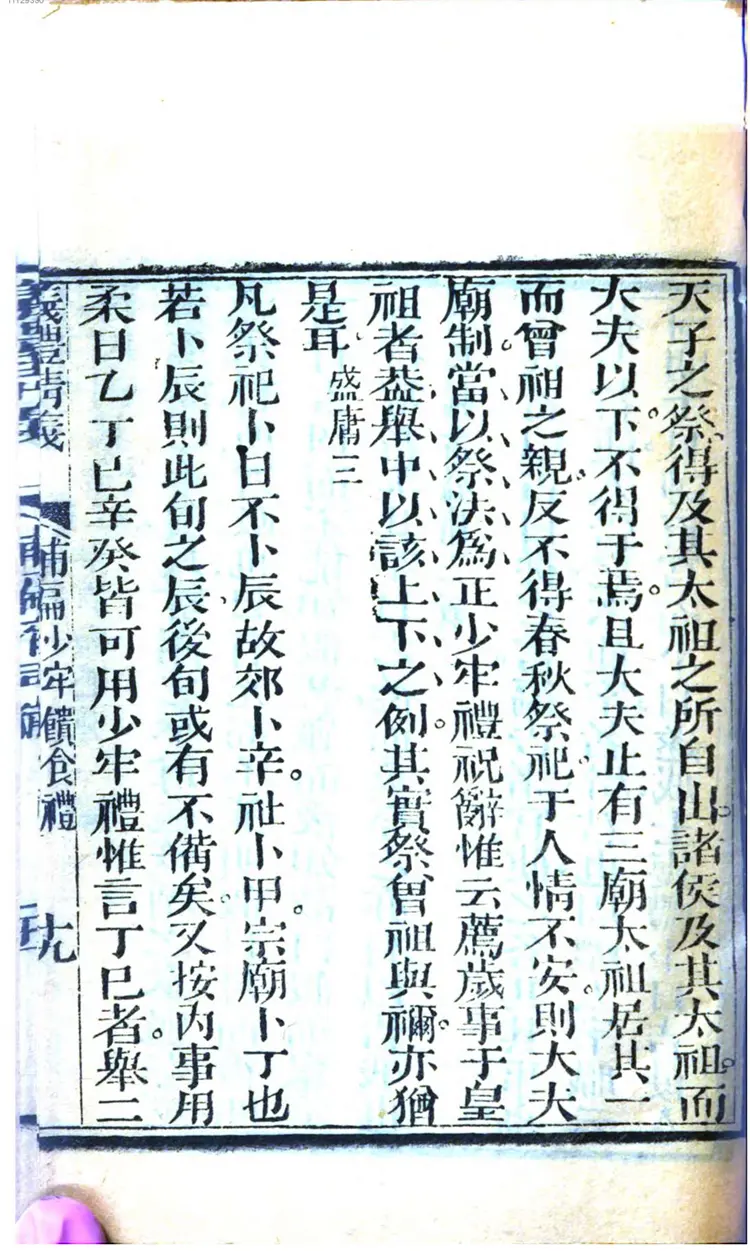 天子之祭得及其太祖之所自出諸侯及其太祖而
大夫以下不得于焉且大夫止有三廟太祖居其一
而曾祖之親反不得春秋祭祀于人情不安則大夫
廟制當以祭法為正少牢禮祝辭惟云薦歲事于皇
祖者葢舉中以該上下之例其實祭曾祖與禰亦猶
是耳 盛庸三
凡祭祀卜日不卜辰故郊卜辛社卜甲宗廟卜丁也
若卜辰則此旬之辰後旬或有不備矣又按內事用
柔日乙丁巳辛癸皆可用少牢禮惟言丁巳者舉二
補編少牢饋食禮
十九